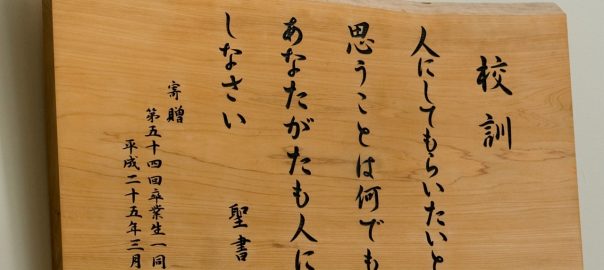 校訓
人にしてもらいたいと
思うことは何でも
あなたがたも人に
しなさい
聖書
寄贈
第五十四回卒業生一同
平成二十五年三月